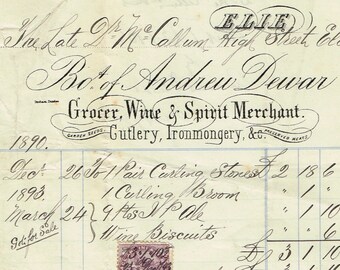 ELIE
The Late Dr. McCallum High Street Elie
Bot. of Andrew Dewar
Grocer, Wine & Spirit Merchant.
GARDEN SEEDS. Cutlery, Ironmongery, &c. PRESERVED MEATS.
1890.
Decr. 26 To 1 Pair Curling Stones £ 2 18 6
1893 1 Curling Broom " 1 "
March 24 } 9 Ale " " 10
Wine Biscuits " "
£ 3 1 10